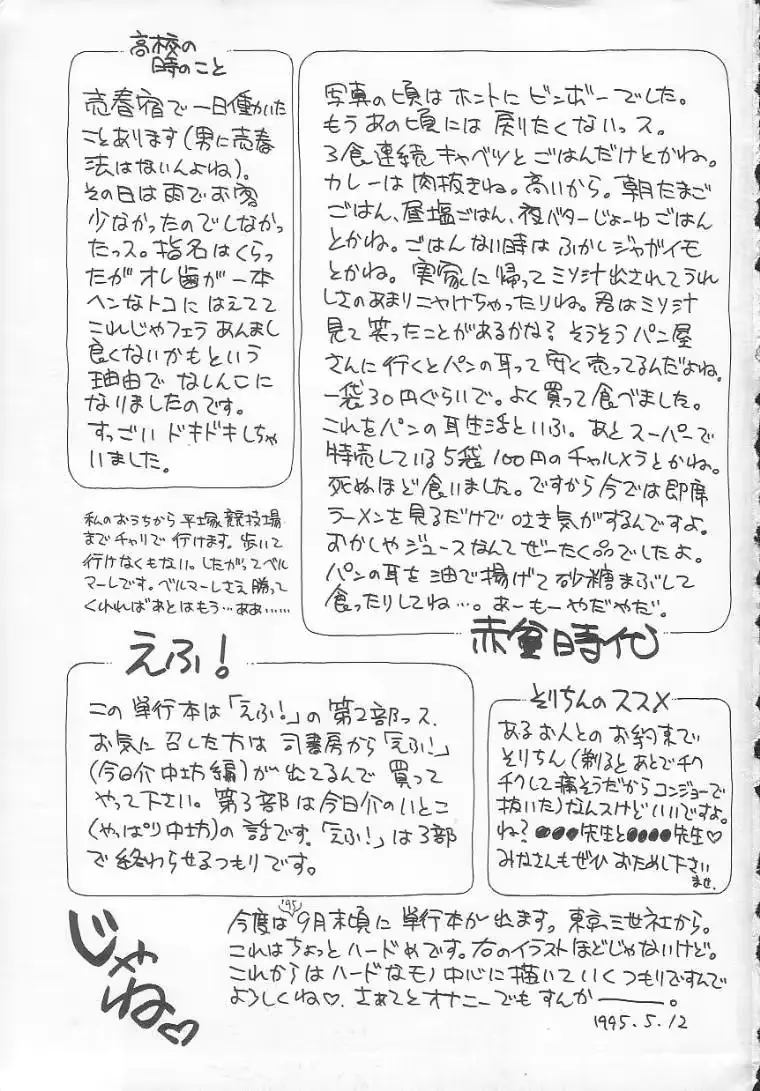 高校の
時のこと
売春宿で一日働いた
ことあります(男に売春
法はないんよね)。
その日は雨でお客
少なかったのでしなかっ
たっス。指名はくらっ
たがオレ歯が一本
ヘンなトコにはえてて
これじゃフェラあんまし
良くないかもという
理由でなしんこに
なりましたのです。
すっごいドキドキしちゃ
いました。
写真の頃はホントにビンボーでした。
もうあの頃には戻りたくないっス。
3食連続キャベツとごはんだけとかね。
カレーは肉抜きね。高いから。朝たまご
ごはん、昼塩ごはん、夜バターじょーゆごはん
とかね。ごはんない時はふかしジャガイモ
とかね。実家に帰ってミソ汁出されてうれ
しさのあまりニヤけちゃったりね。君はミソ汁
見て笑ったことがあるかな?そうそうパン屋
さんに行くとパンの耳って安く売ってるんだよね。
一袋30円ぐらいで。よく買って食べました。
これをパンの耳生活といふ。あとスーパーで
特売している5袋100円のチャルメラとかね。
死ぬほど食いました。ですから今では即席
ラーメンを見るだけで吐き気がするんですよ。
おかしやジュースなんてぜーたく品でしたよ。
パンの耳を油で揚げて砂糖まぶして
食ったりしてね…。あーもーやだやだ。
赤貧時代
私のおうちから平塚競技場
までチャリで行けます。歩いて
行けなくもない。したがってベル
マーレです。ベルマーレさえ勝って
くれればあとはもう…ああ……
えふ!
この単行本は「えふ!」の第2部っス。
お気に召した方は司書房から「えふ!」
(今日介中坊編)が出てるんで買って
やって下さい。第3部は今日介のいとこ
(やっぱり中坊)の話です。「えふ!」は3部
で終わらせるつもりです。
そりちんのススメ
あるお人とのお約束で
そりちん(剃るとあとでチク
チクして痛そうだからコンジョーで
抜いた)なんスけどいいですよ。
ね?●●●先生と●●●●先生♡
みなさんもぜひおためし下さい
ませ。
じゃ
ね♡
今度は'95 9月末頃に単行本が出ます。東京三世社から。
これはちょっとハードめです。右のイラストほどじゃないけど。
これからはハードなモノ中心に描いていくつもりですんで
よろしくね♡。さぁてとオナニーでもすんか―――。
1995.5.12